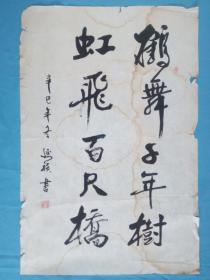 鶴舞千年樹
虹飛百尺橋
辛巳年冬
書